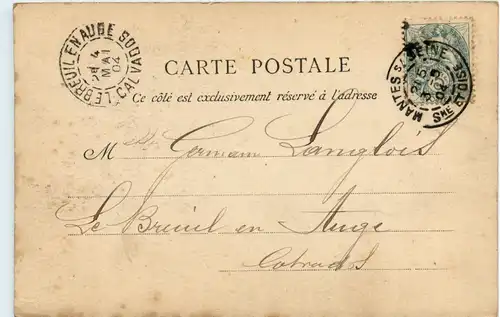 LE BREUIL EN AUGE
CALVADOS
MAI
04
MANTES S/ SEINE
SNE ET OISE
CARTE POSTALE
Ce côté est exclusivement réservé à l'adresse
M Germain Langlois
Le Breuil en Auge